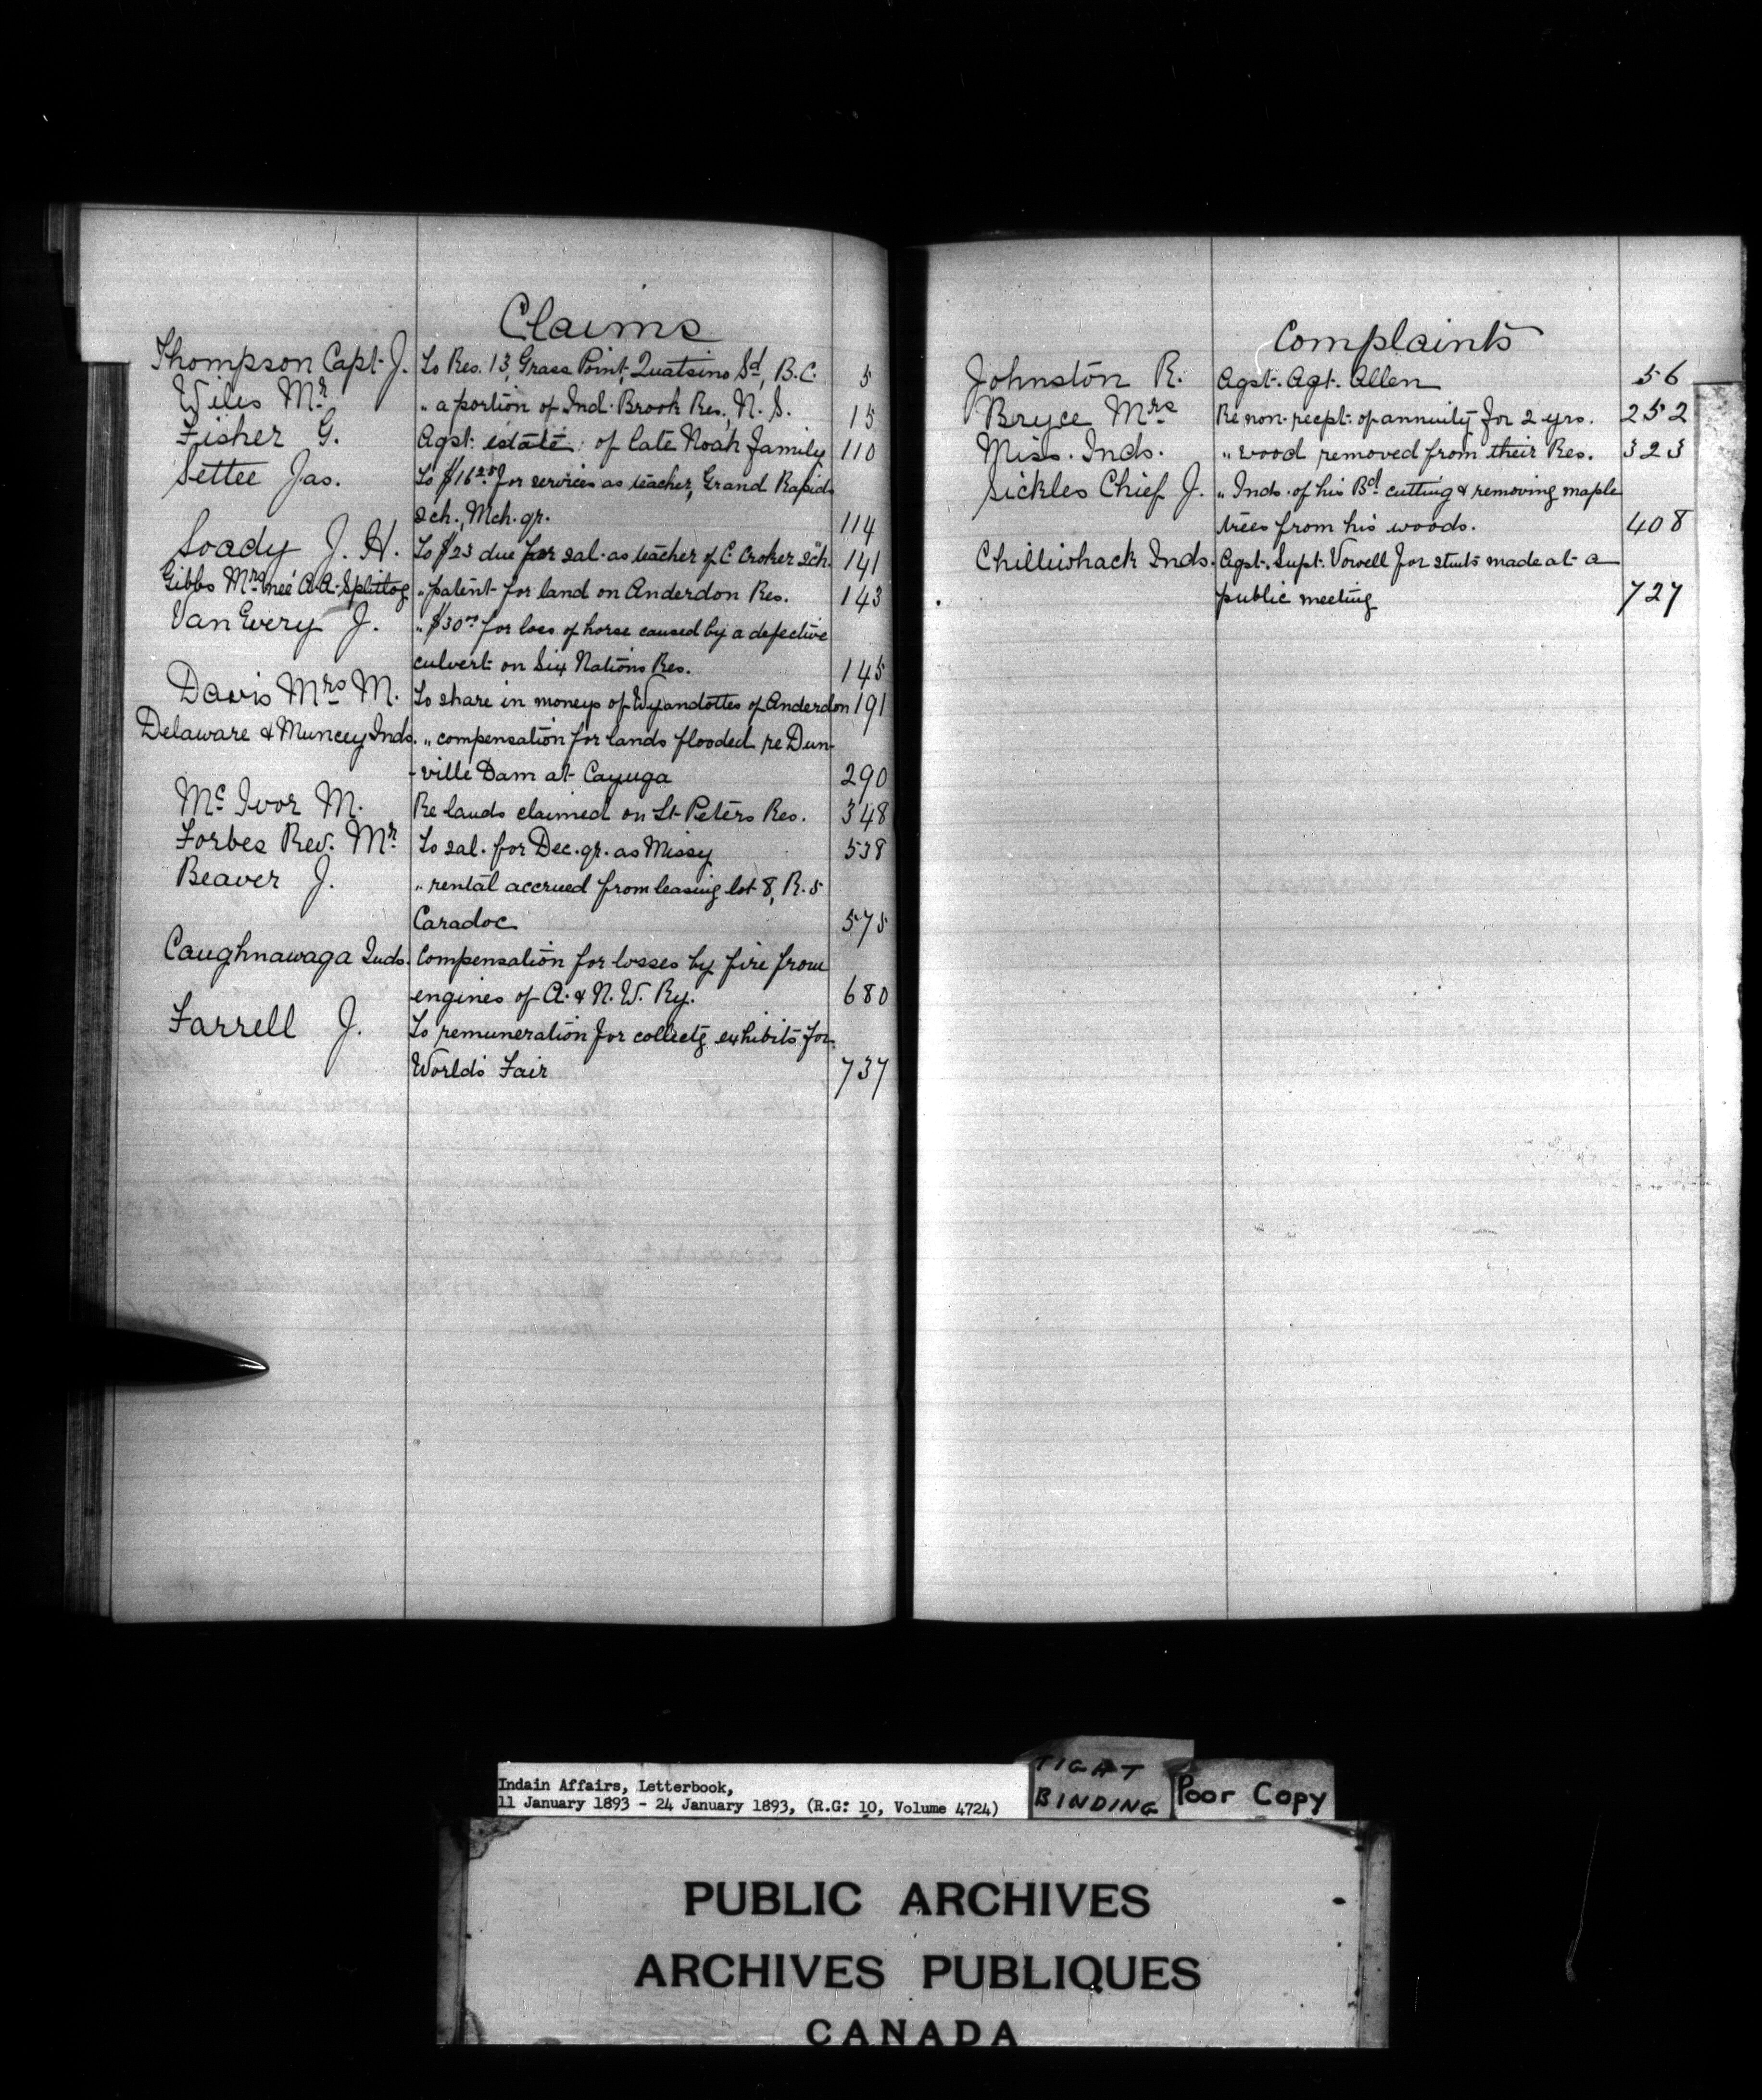 Claims
Thompson Capt. J. To Res. 13, Grass Point, Quatsino Sd, B.C. 5
Wiles Mr. " a portion of Ind. Brook Res., N. S. 15
Fisher G. Agst. estate of late Noah family 110
Settee Jas. To $16 25 for services as teacher, Grand Rapids
sch., Mch. qr. 114
Soady J. H. To $23 due for sal. as teacher of C. Croker Sch. 141
Gibbs Mrs. neé A. A. Splitlog " patent for land on Anderdon Res. 143
Van Every J. " $30 00 for loss of horse caused by a defective
culvert on Six Nations Res. 145
Davis Mrs M. To share in moneys of Wyandottes of Anderdon 191
Delaware & Muncey Inds. " compensation for lands flooded re Dun-
-ville Dam at Cayuga 290
Mc Ivor M. Re lands claimed on St. Peters Res. 348
Forbes Rev. Mr. To sal. for Dec. qr. as Missy 538
Beaver J. " rental accrued from leasing lot 8, R. 5
Caradoc 575
Caughnawaga Inds. Compensation for losses by fire from
engines of A. & N. W. Ry. 680
Farrell J. To remuneration for collectg exhibits for
World's Fair 737
Complaints
Johnston R. Agst. Agt. Allen 56
Bryce Mrs Re non-recpt. of annuity for 2 yrs. 252
Miss. Inds. " wood removed from their Res. 323
Sickles Chief J. " Inds. of his Bd. cutting & removing maple
trees from his woods. 408
Chilliwhack Inds. Agst. Supt. Vowell for stmts made at a
public meeting 727
Indain Affairs, Letterbook,
11 January 1893 - 24 January 1893, (R.G: 10, Volume 4724)
TIGHT
BINDING
Poor Copy
PUBLIC ARCHIVES
ARCHIVES PUBLIQUES
CANADA